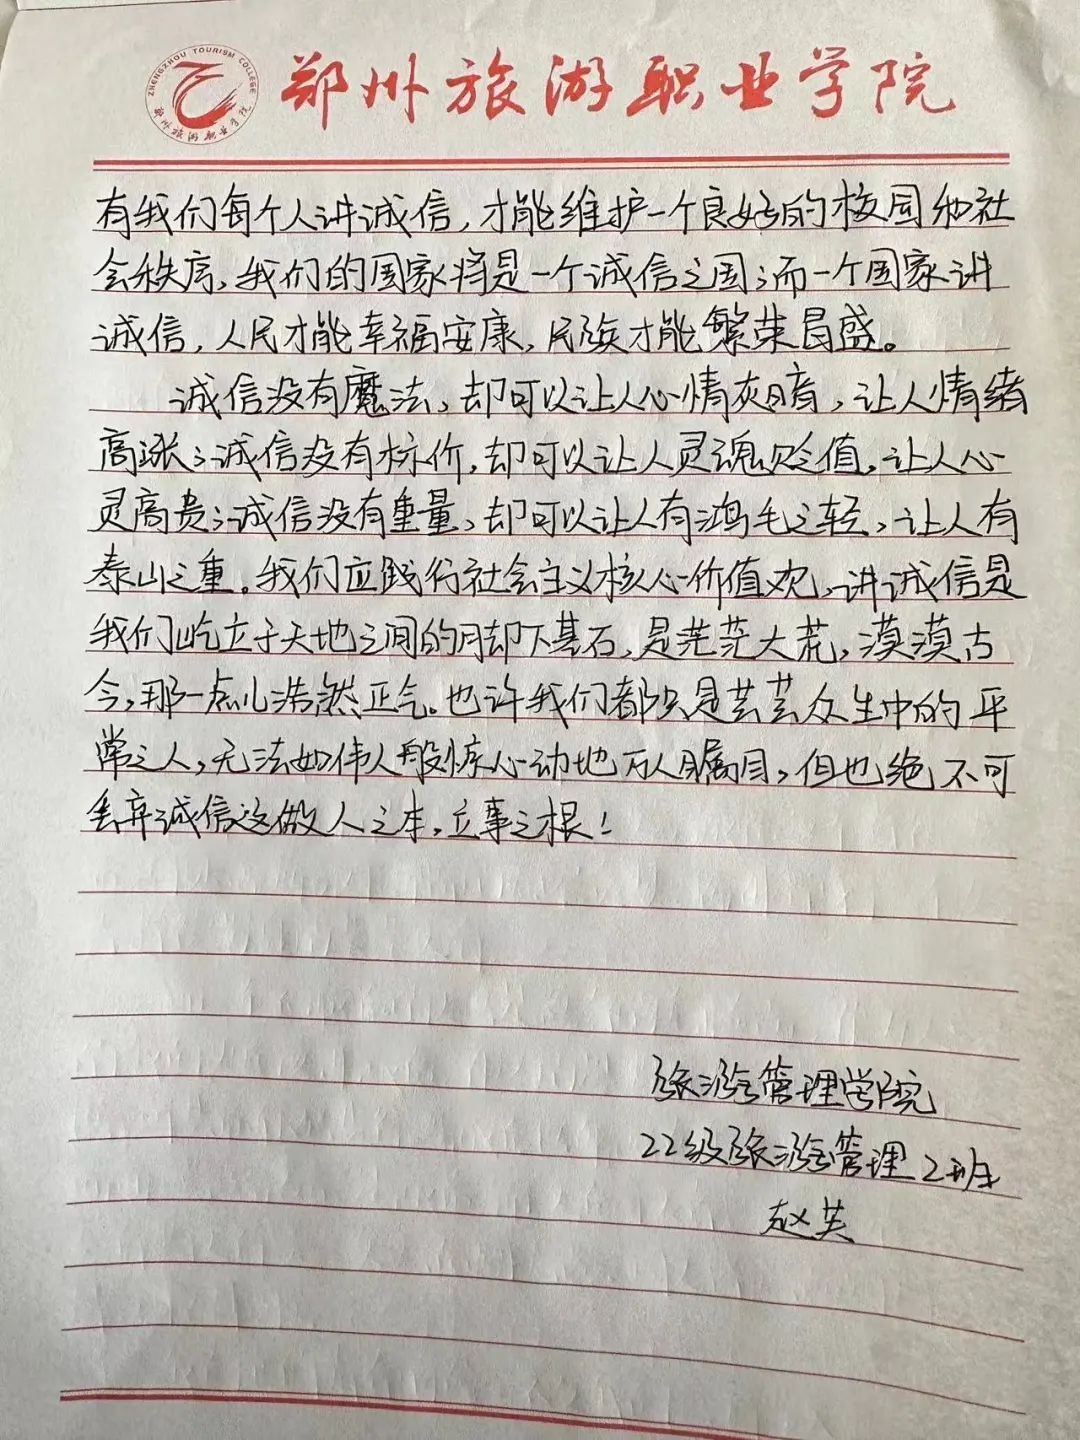 ZHENGZHOU TOURISM COLLEGE
郑州旅游职业学院
郑州旅游职业学院
有我们每个人讲诚信，才能维护一个良好的校园和社
会秩序，我们的国家将是一个诚信之国；而一个国家讲
诚信，人民才能幸福安康，民族才能繁荣昌盛。
诚信没有魔法，却可以让人心情灰暗，让人情绪
高涨；诚信没有标价，却可以让人灵魂贬值，让人心
灵高贵；诚信没有重量，却可以让人有鸿毛之轻，让人有
泰山之重。我们应践行社会主义核心价值观，讲诚信是
我们屹立于天地之间的脚下基石，是茫茫大荒，漠漠古
今，那一点儿浩然正气。也许我们都只是芸芸众生中的平
常之人，无法如伟人般惊心动地万人瞩目，但也绝不可
丢弃诚信这做人之本，立事之根！
旅游管理学院
22级旅游管理2班
赵英